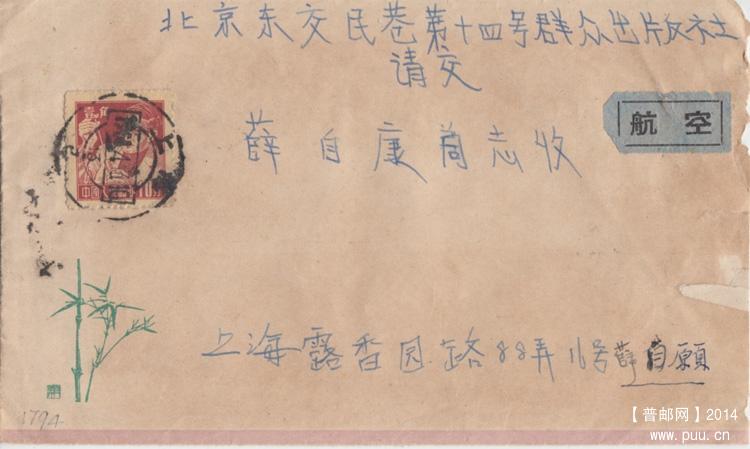 北京东交民巷第十四号群众出版社
请交
航空
薛自康同志收
壹角
上海
上海露香园路88弄16号薛自愿
1794
【普邮网】2014
www.puu.cn